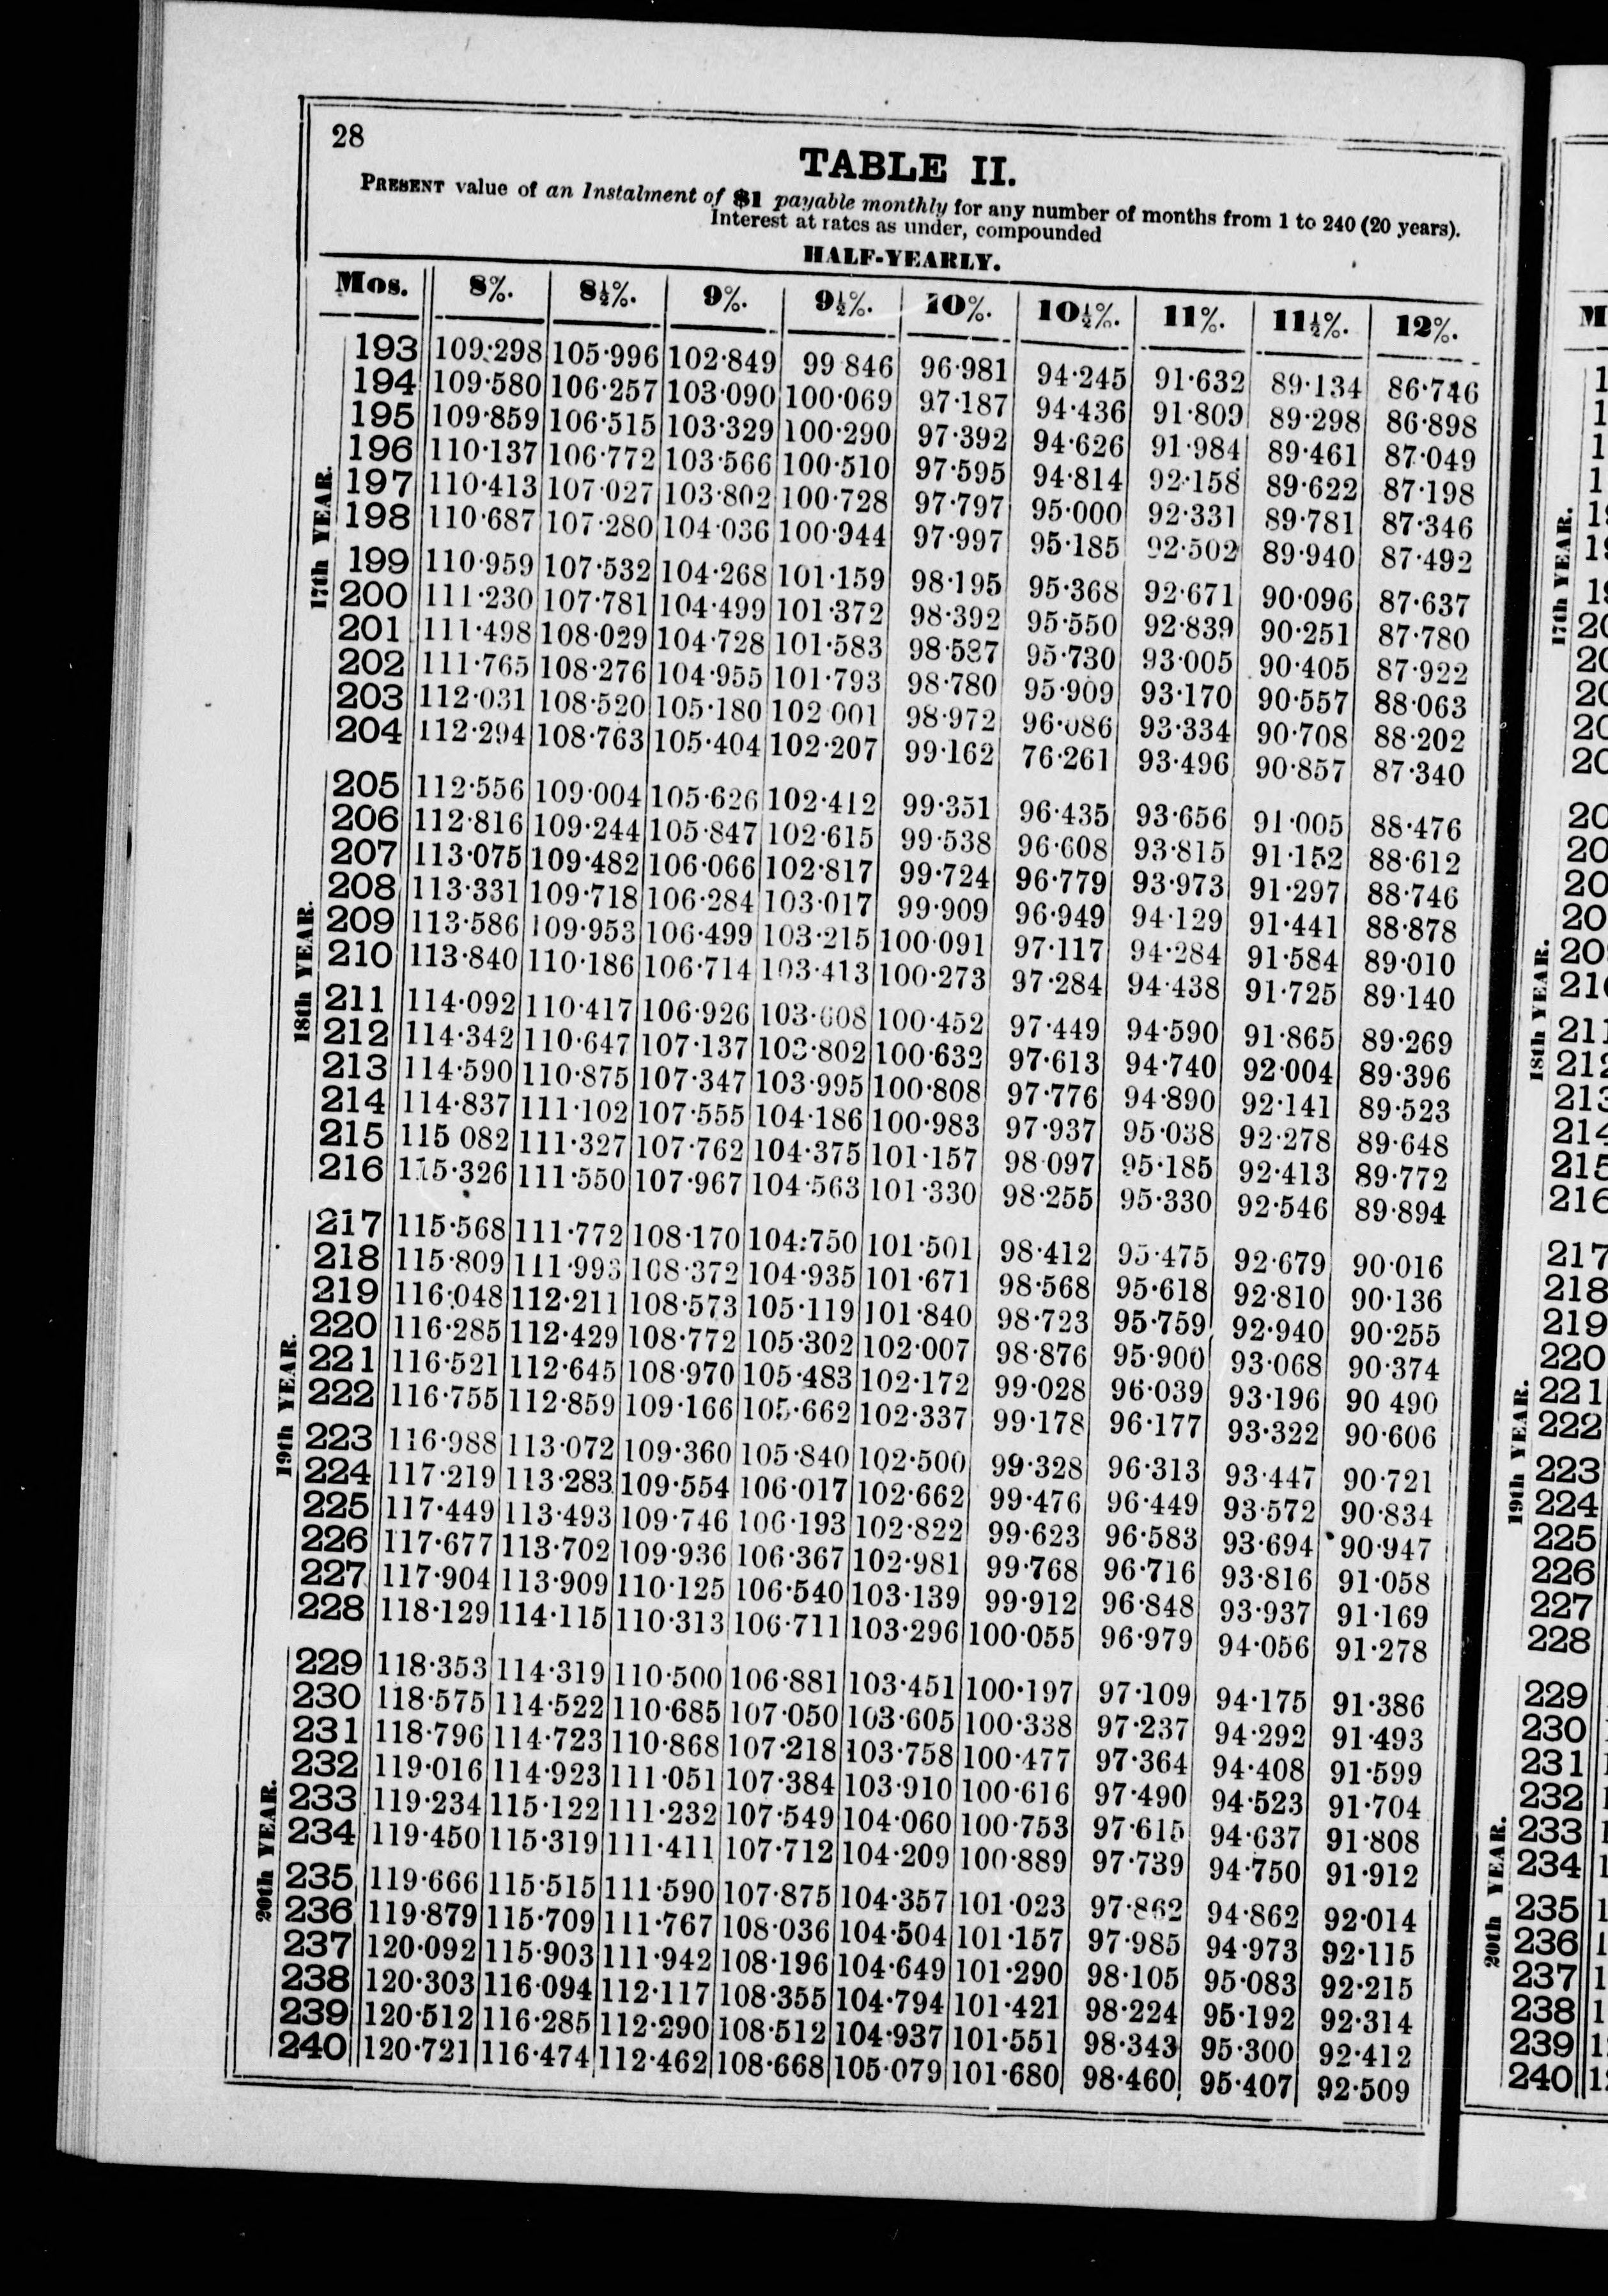 28
TABLE II.
PRESENT value of an Instalment of $1 payable monthly for any number of months from 1 to 240 (20 years).
Interest at rates as under, compounded
HALF-YEARLY.
Mos. 8%. 8½%. 9%. 9½%. 10%. 10½%. 11%. 11½%. 12%.
17th YEAR.
193 109·298 105·996 102·849 99 846 96·981 94·245 91·632 89·134 86·746
194 109·580 106·257 103·090 100·069 97·187 94·436 91·809 89·298 86·898
195 109·859 106·515 103·329 100·290 97·392 94·626 91·984 89·461 87·049
196 110·137 106·772 103·566 100·510 97·595 94·814 92·158 89·622 87·198
197 110·413 107·027 103·802 100·728 97·797 95·000 92·331 89·781 87·346
198 110·687 107·280 104·036 100·944 97·997 95·185 92·502 89·940 87·492
199 110·959 107·532 104·268 101·159 98·195 95·368 92·671 90·096 87·637
200 111·230 107·781 104·499 101·372 98·392 95·550 92·839 90·251 87·780
201 111·498 108·029 104·728 101·583 98·587 95·730 93·005 90·405 87·922
202 111·765 108·276 104·955 101·793 98·780 95·909 93·170 90·557 88·063
203 112·031 108·520 105·180 102 001 98·972 96·086 93·334 90·708 88·202
204 112·294 108·763 105·404 102·207 99·162 76·261 93·496 90·857 87·340
18th YEAR.
205 112·556 109·004 105·626 102·412 99·351 96·435 93·656 91·005 88·476
206 112·816 109·244 105·847 102·615 99·538 96·608 93·815 91·152 88·612
207 113·075 109·482 106·066 102·817 99·724 96·779 93·973 91·297 88·746
208 113·331 109·718 106·284 103·017 99·909 96·949 94·129 91·441 88·878
209 113·586 109·953 106·499 103·215 100·091 97·117 94·284 91·584 89·010
210 113·840 110·186 106·714 103·413 100·273 97·284 94·438 91·725 89·140
211 114·092 110·417 106·926 103·608 100·452 97·449 94·590 91·865 89·269
212 114·342 110·647 107·137 103·802 100·632 97·613 94·740 92·004 89·396
213 114·590 110·875 107·347 103·995 100·808 97·776 94·890 92·141 89·523
214 114·837 111·102 107·555 104·186 100·983 97·937 95·038 92·278 89·648
215 115 082 111·327 107·762 104·375 101·157 98·097 95·185 92·413 89·772
216 115·326 111·550 107·967 104·563 101·330 98·255 95·330 92·546 89·894
19th YEAR.
217 115·568 111·772 108·170 104·750 101·501 98·412 95·475 92·679 90·016
218 115·809 111·993 108·372 104·935 101·671 98·568 95·618 92·810 90·136
219 116·048 112·211 108·573 105·119 101·840 98·723 95·759 92·940 90·255
220 116·285 112·429 108·772 105·302 102·007 98·876 95·900 93·068 90·374
221 116·521 112·645 108·970 105·483 102·172 99·028 96·039 93·196 90 490
222 116·755 112·859 109·166 105·662 102·337 99·178 96·177 93·322 90·606
223 116·988 113·072 109·360 105·840 102·500 99·328 96·313 93·447 90·721
224 117·219 113·283 109·554 106·017 102·662 99·476 96·449 93·572 90·834
225 117·449 113·493 109·746 106·193 102·822 99·623 96·583 93·694 90·947
226 117·677 113·702 109·936 106·367 102·981 99·768 96·716 93·816 91·058
227 117·904 113·909 110·125 106·540 103·139 99·912 96·848 93·937 91·169
228 118·129 114·115 110·313 106·711 103·296 100·055 96·979 94·056 91·278
20th YEAR.
229 118·353 114·319 110·500 106·881 103·451 100·197 97·109 94·175 91·386
230 118·575 114·522 110·685 107·050 103·605 100·338 97·237 94·292 91·493
231 118·796 114·723 110·868 107·218 103·758 100·477 97·364 94·408 91·599
232 119·016 114·923 111·051 107·384 103·910 100·616 97·490 94·523 91·704
233 119·234 115·122 111·232 107·549 104·060 100·753 97·615 94·637 91·808
234 119·450 115·319 111·411 107·712 104·209 100·889 97·739 94·750 91·912
235 119·666 115·515 111·590 107·875 104·357 101·023 97·862 94·862 92·014
236 119·879 115·709 111·767 108·036 104·504 101·157 97·985 94·973 92·115
237 120·092 115·903 111·942 108·196 104·649 101·290 98·105 95·083 92·215
238 120·303 116·094 112·117 108·355 104·794 101·421 98·224 95·192 92·314
239 120·512 116·285 112·290 108·512 104·937 101·551 98·343 95·300 92·412
240 120·721 116·474 112·462 108·668 105·079 101·680 98·460 95·407 92·509
17th YEAR.
18th YEAR.
211
212
213
214
215
216
19th YEAR.
217
218
219
220
221
222
223
224
225
226
227
228
20th YEAR.
229
230
231
232
233
234
235
236
237
238
239
240